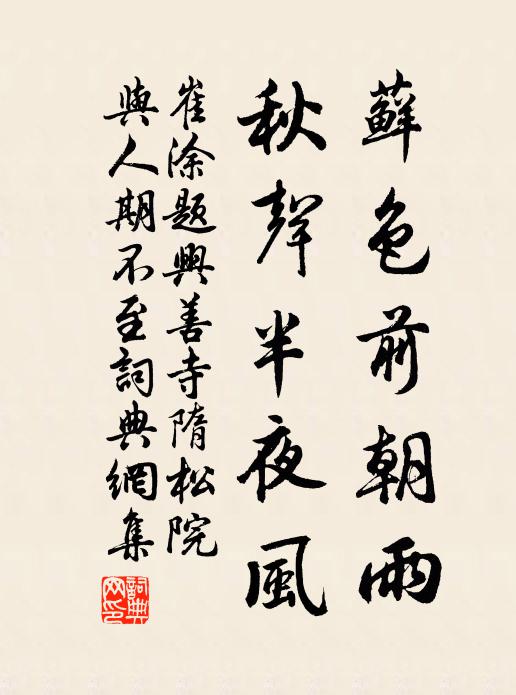 蘚色前朝雨
秋聲半夜風
崔涂題興善寺隋松院
與人期不至詞典網集